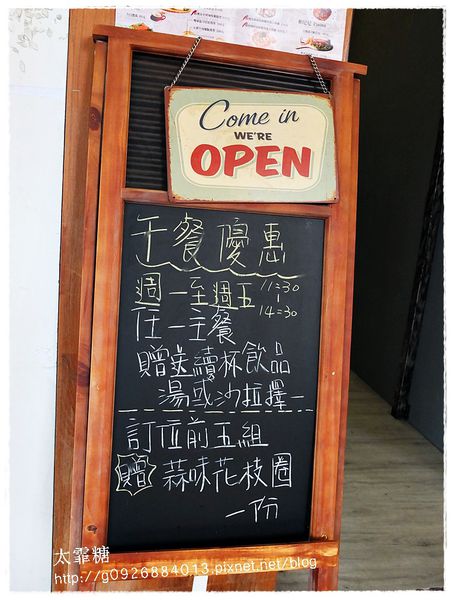 Come in
WE'RE
OPEN
午餐優惠
週一至週五 11:30
|
14:30
任一主餐
贈送續杯飲品
湯或沙拉擇一
訂位前五組
贈 蒜味花枝圈
一份
太霏糖
http://g0926884013.pixnet.net/blog